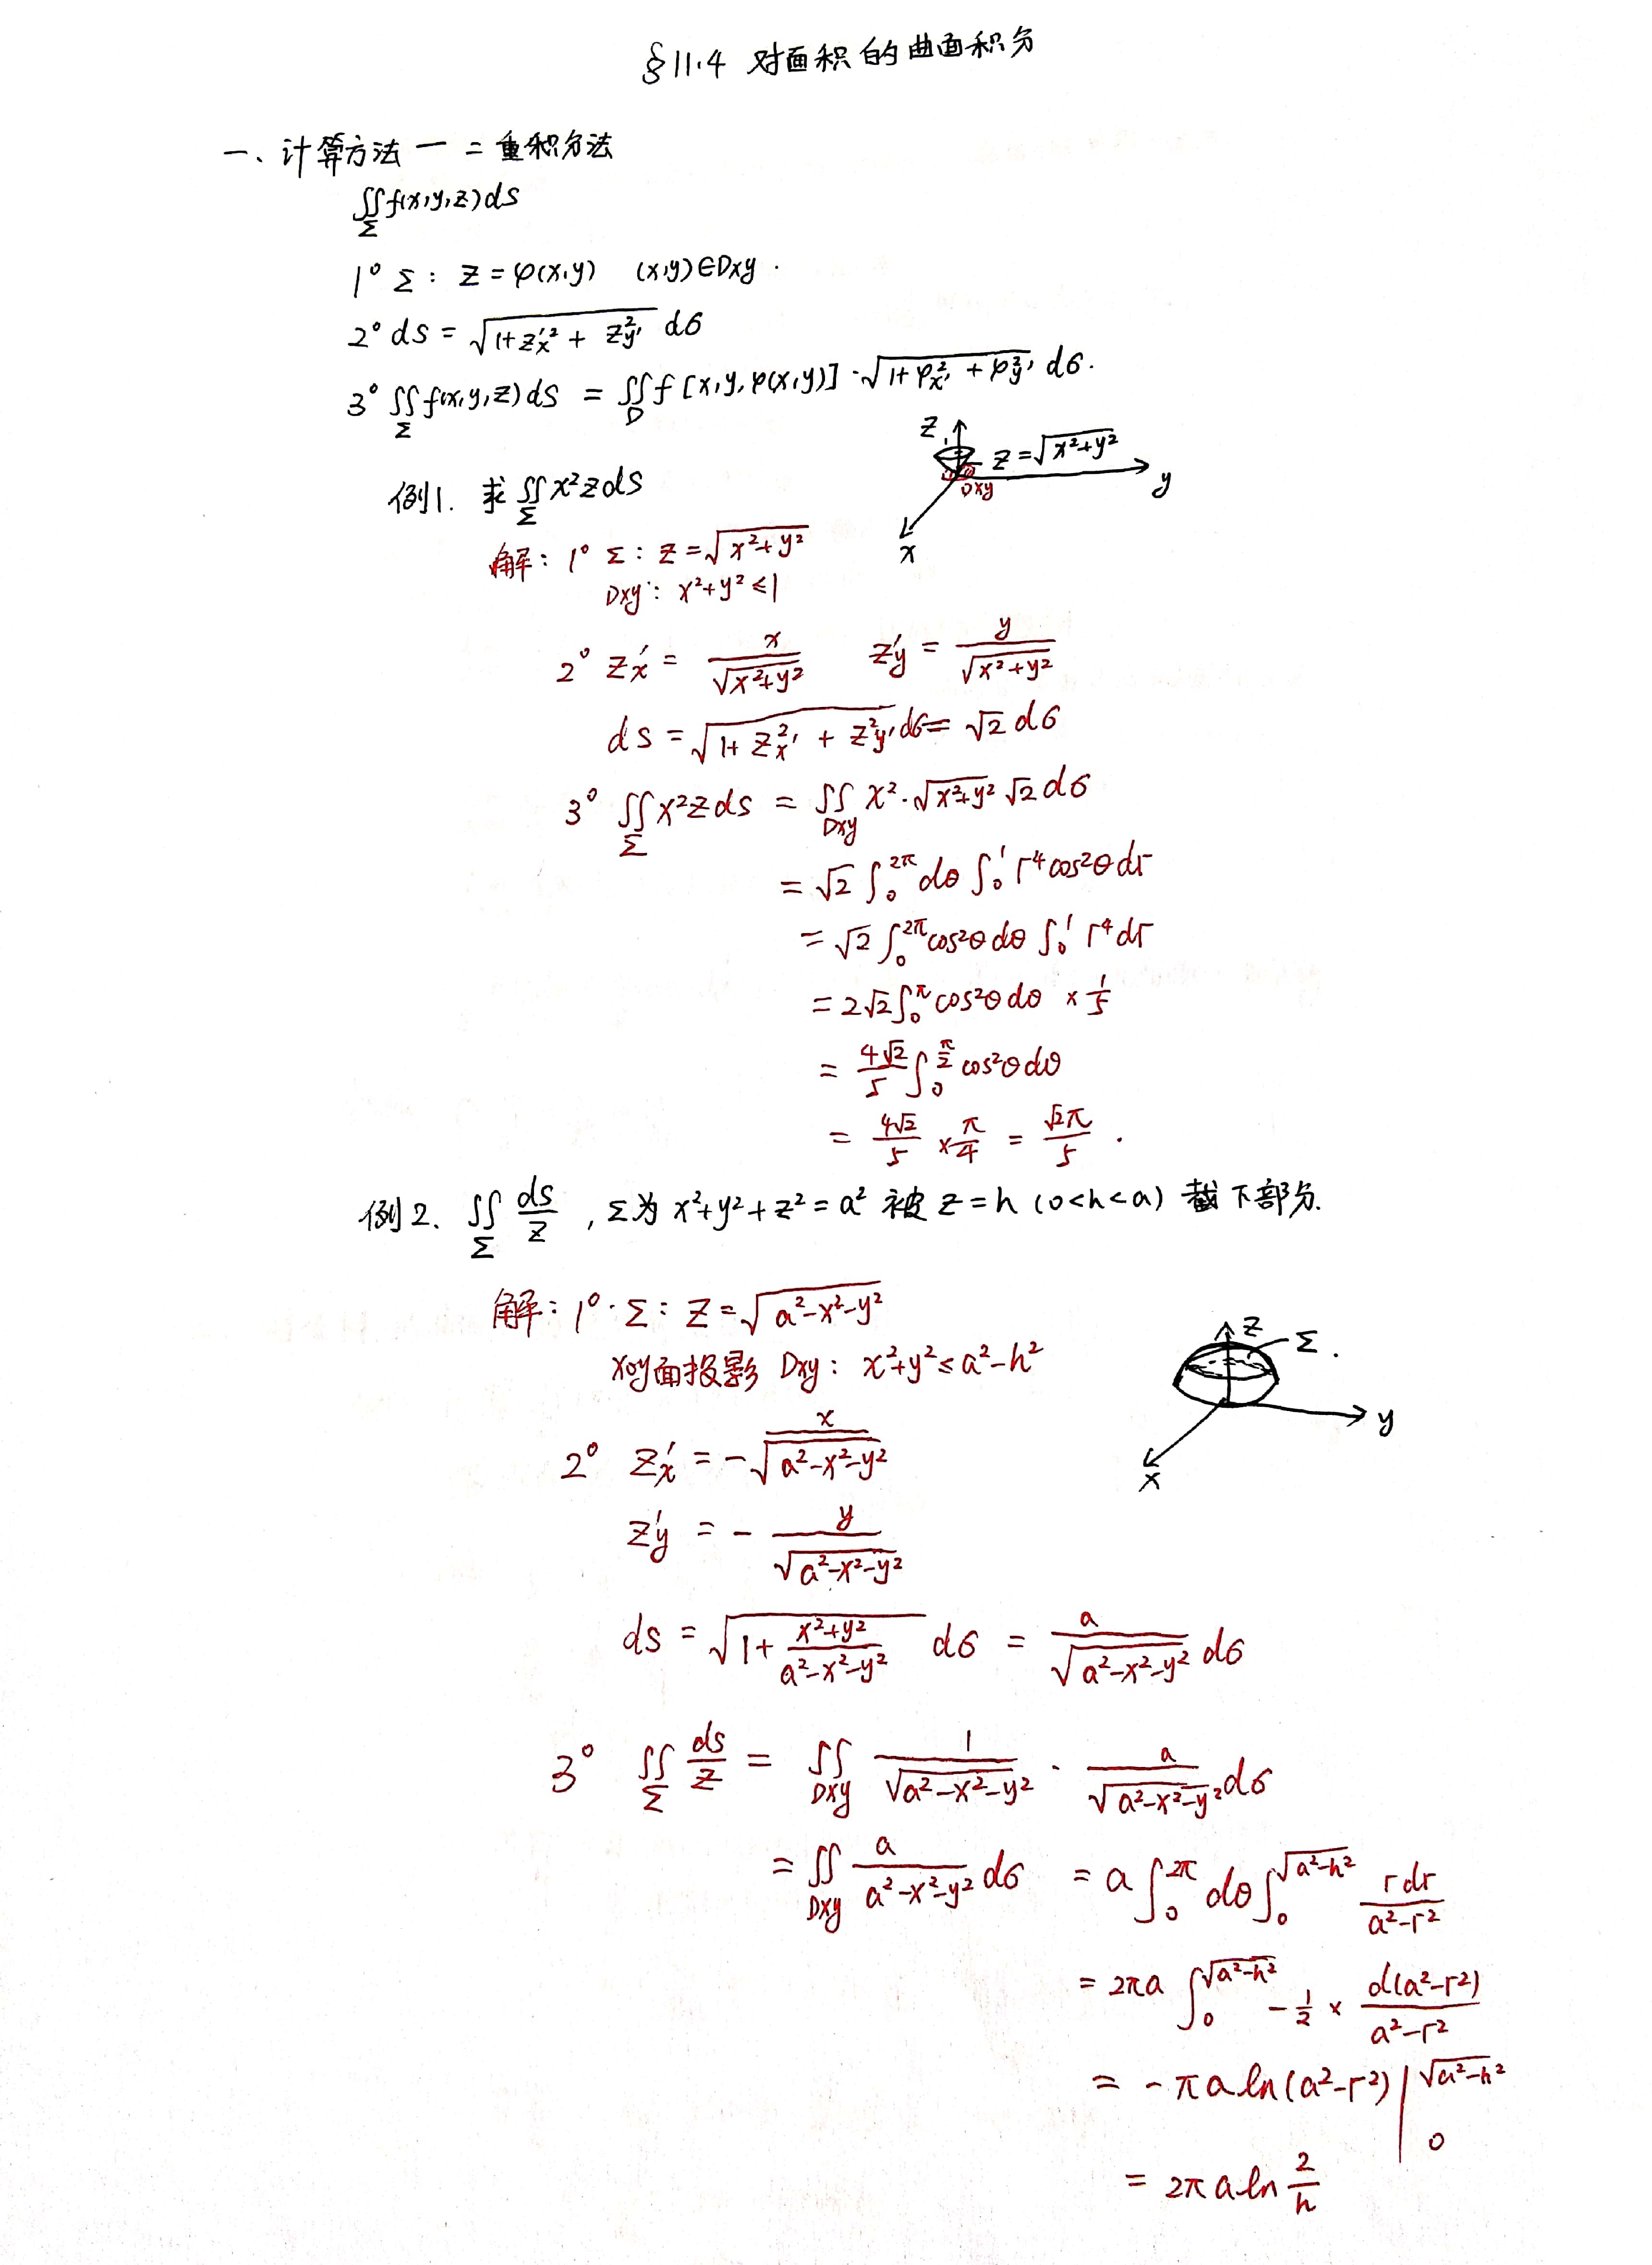 §11.4 对面积的曲面积分
一、计算方法一 二重积分法
∬_Σ f(x,y,z)ds
1° Σ: z=φ(x,y) (x,y)∈Dxy.
2° ds=√(1+z'x²+z'y²) dσ
3° ∬_Σ f(x,y,z)ds = ∬_D f[x,y,φ(x,y)]·√(1+φx'²+φy'²) dσ.
z
z=√(x²+y²)
y
Dxy
x
例1. 求∬_Σ x²zds
解: 1° Σ: z=√(x²+y²)
Dxy: x²+y²≤1
2° z'x = x/√(x²+y²) z'y = y/√(x²+y²)
ds=√(1+zx'²+zy'²)dσ=√2 dσ
3° ∬_Σ x²zds = ∬_Dxy x²·√(x²+y²) √2 dσ
=√2 ∫₀^2π dθ ∫₀^1 r⁴cos²θdr
=√2 ∫₀^2π cos²θdθ ∫₀^1 r⁴dr
=2√2∫₀^π cos²θdθ × 1/5
= 4√2/5 ∫₀^(π/2) cos²θdθ
= 4√2/5 × π/4 = √2π/5.
例2. ∬_Σ ds/z , Σ为x²+y²+z²=a² 被z=h (0<h<a) 截下部分.
解: 1°. Σ: z=√(a²-x²-y²)
xoy面投影 Dxy: x²+y²≤a²-h²
z
Σ.
y
x
2° z'x = -x/√(a²-x²-y²)
z'y = - y/√(a²-x²-y²)
ds = √(1+(x²+y²)/(a²-x²-y²)) dσ = a/√(a²-x²-y²) dσ
3° ∬_Σ ds/z = ∬_Dxy 1/√(a²-x²-y²) · a/√(a²-x²-y²) dσ
= ∬_Dxy a/(a²-x²-y²) dσ = a∫₀^2π dθ∫₀^√(a²-h²) rdr/(a²-r²)
= 2πa ∫₀^√(a²-h²) -1/2 × d(a²-r²)/(a²-r²)
= -πa ln(a²-r²)|₀^√(a²-h²)
= 2πa ln 2/h